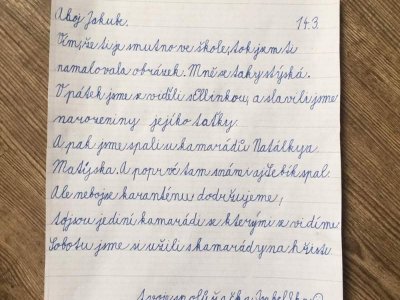 Ahoj Jakube. 14.3.
Vím, že ti je smutno ve škole, tak jsem ti
namalovala obrázek. Mně se taky stýská.
V pátek jsme se viděli s Ellinkou, a slavili jsme
narozeniny jejího taťky.
A pak jsme spali u kamarádů Natálky a
Matýska. A poprvé tam s námi ajťebík spal.
Ale neboj se karanténu dodržujeme,
to jsou jediní kamarádi se kterými se vidíme.
Sobotu jsme si užili s kamarády na hřišti.
Tvoje spolužačka